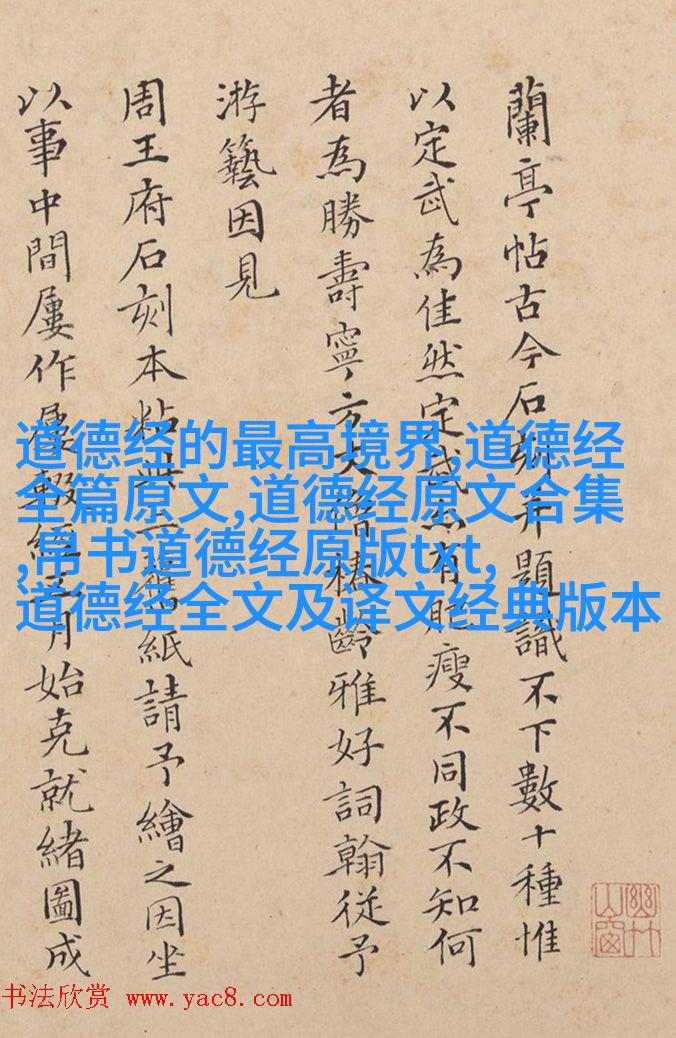 蘭亭帖古今石刻并題識不下數十種惟
以定武為佳然定武亦有肥瘦不同政不知何
者為勝壽寧方椿齡雅好詞翰從予
游藝因見
周王府石刻本粘紙請予繪之因坐
以事中間屢作屢輟經月始克就緒圖成
道德经的最高境界,道德经
全篇原文,道德经原文合集
,帛书道德经原版txt,
道德经全文及译文经典版本
幽竹山窗
书法欣赏 www.yac8.com